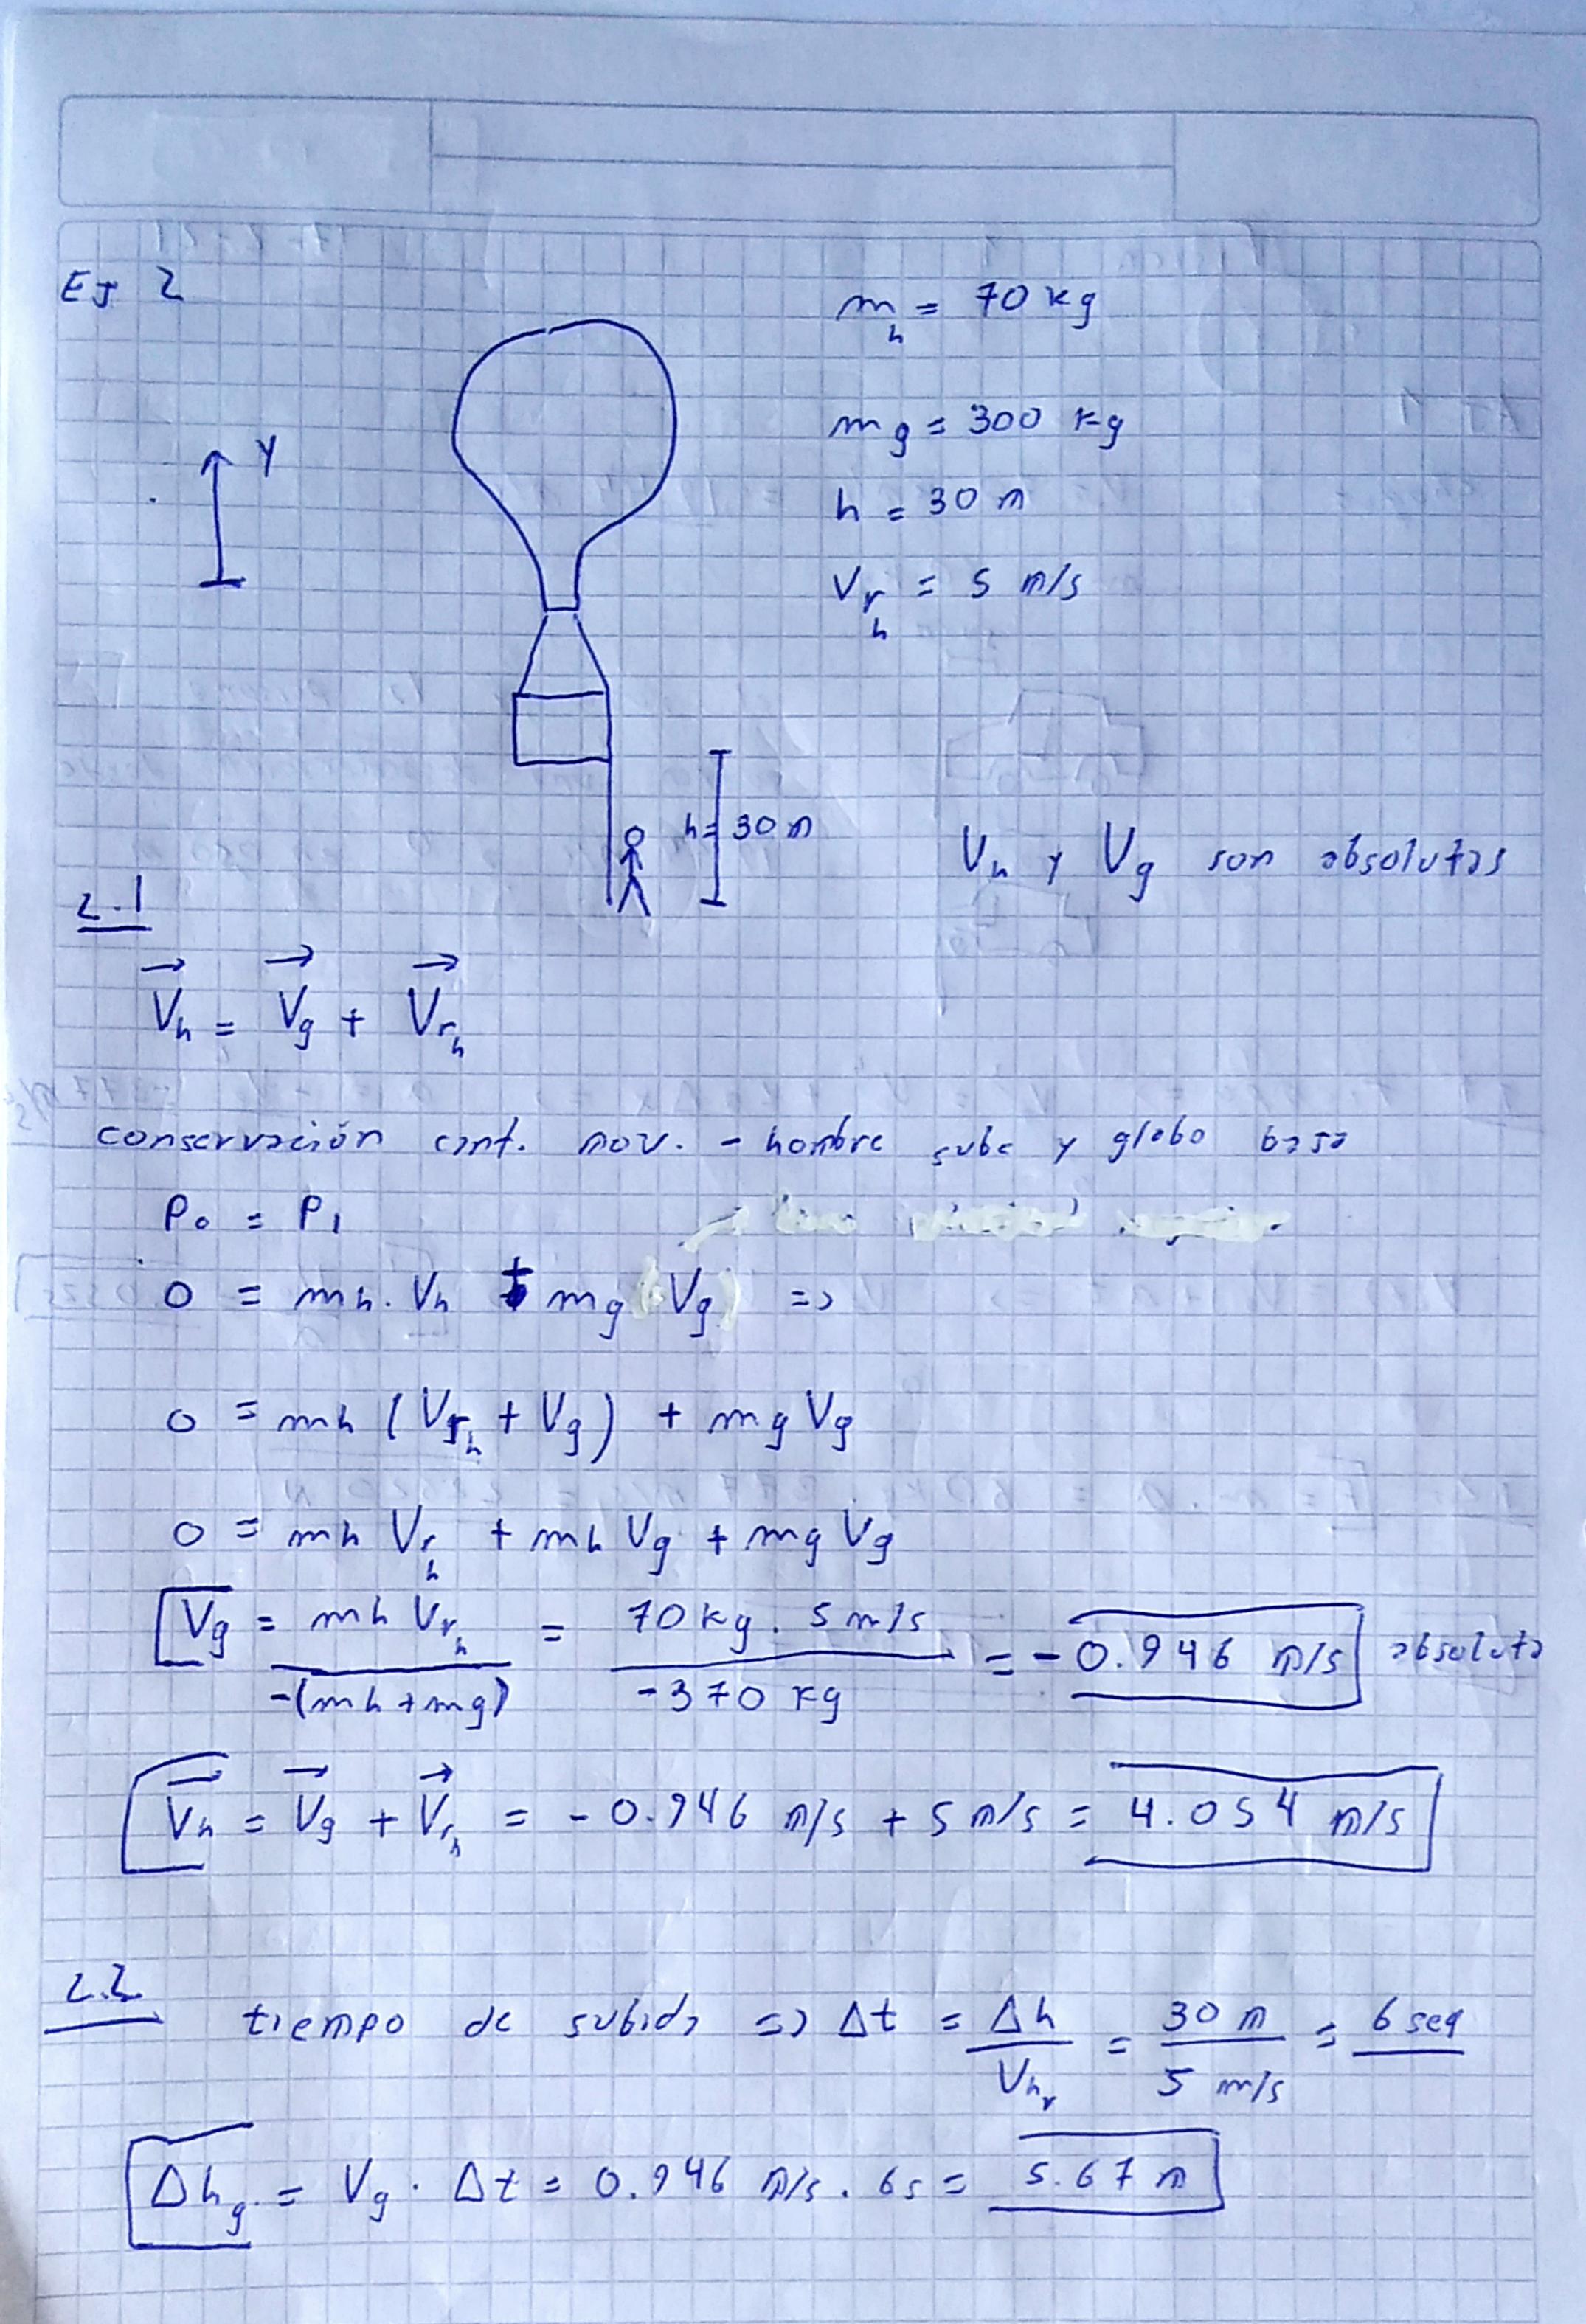 EJ 2
m_h = 70 kg
m_g = 300 kg
Y
h = 30 m
V_{r_h} = 5 m/s
h = 30 m
V_h y V_g son absolutas
2.1
\vec{V_h} = \vec{V_g} + \vec{V_{r_h}}
conservación cant. mov. - hombre sube y globo baja
P_0 = P_1
0 = m_h . V_h + m_g V_g =>
0 = m_h (V_{r_h} + V_g) + m_g V_g
0 = m_h V_{r_h} + m_h V_g + m_g V_g
V_g = \frac{m_h V_{r_h}}{-(m_h + m_g)} = \frac{70 kg . 5 m/s}{-370 kg} = -0.946 m/s absoluta
\vec{V_h} = \vec{V_g} + \vec{V_{r_h}} = -0.946 m/s + 5 m/s = 4.054 m/s
2.2 tiempo de subida => Δt = \frac{Δh}{V_{h_r}} = \frac{30 m}{5 m/s} = 6 seg
Δh_g = V_g . Δt = 0.946 m/s . 6s = 5.67 m